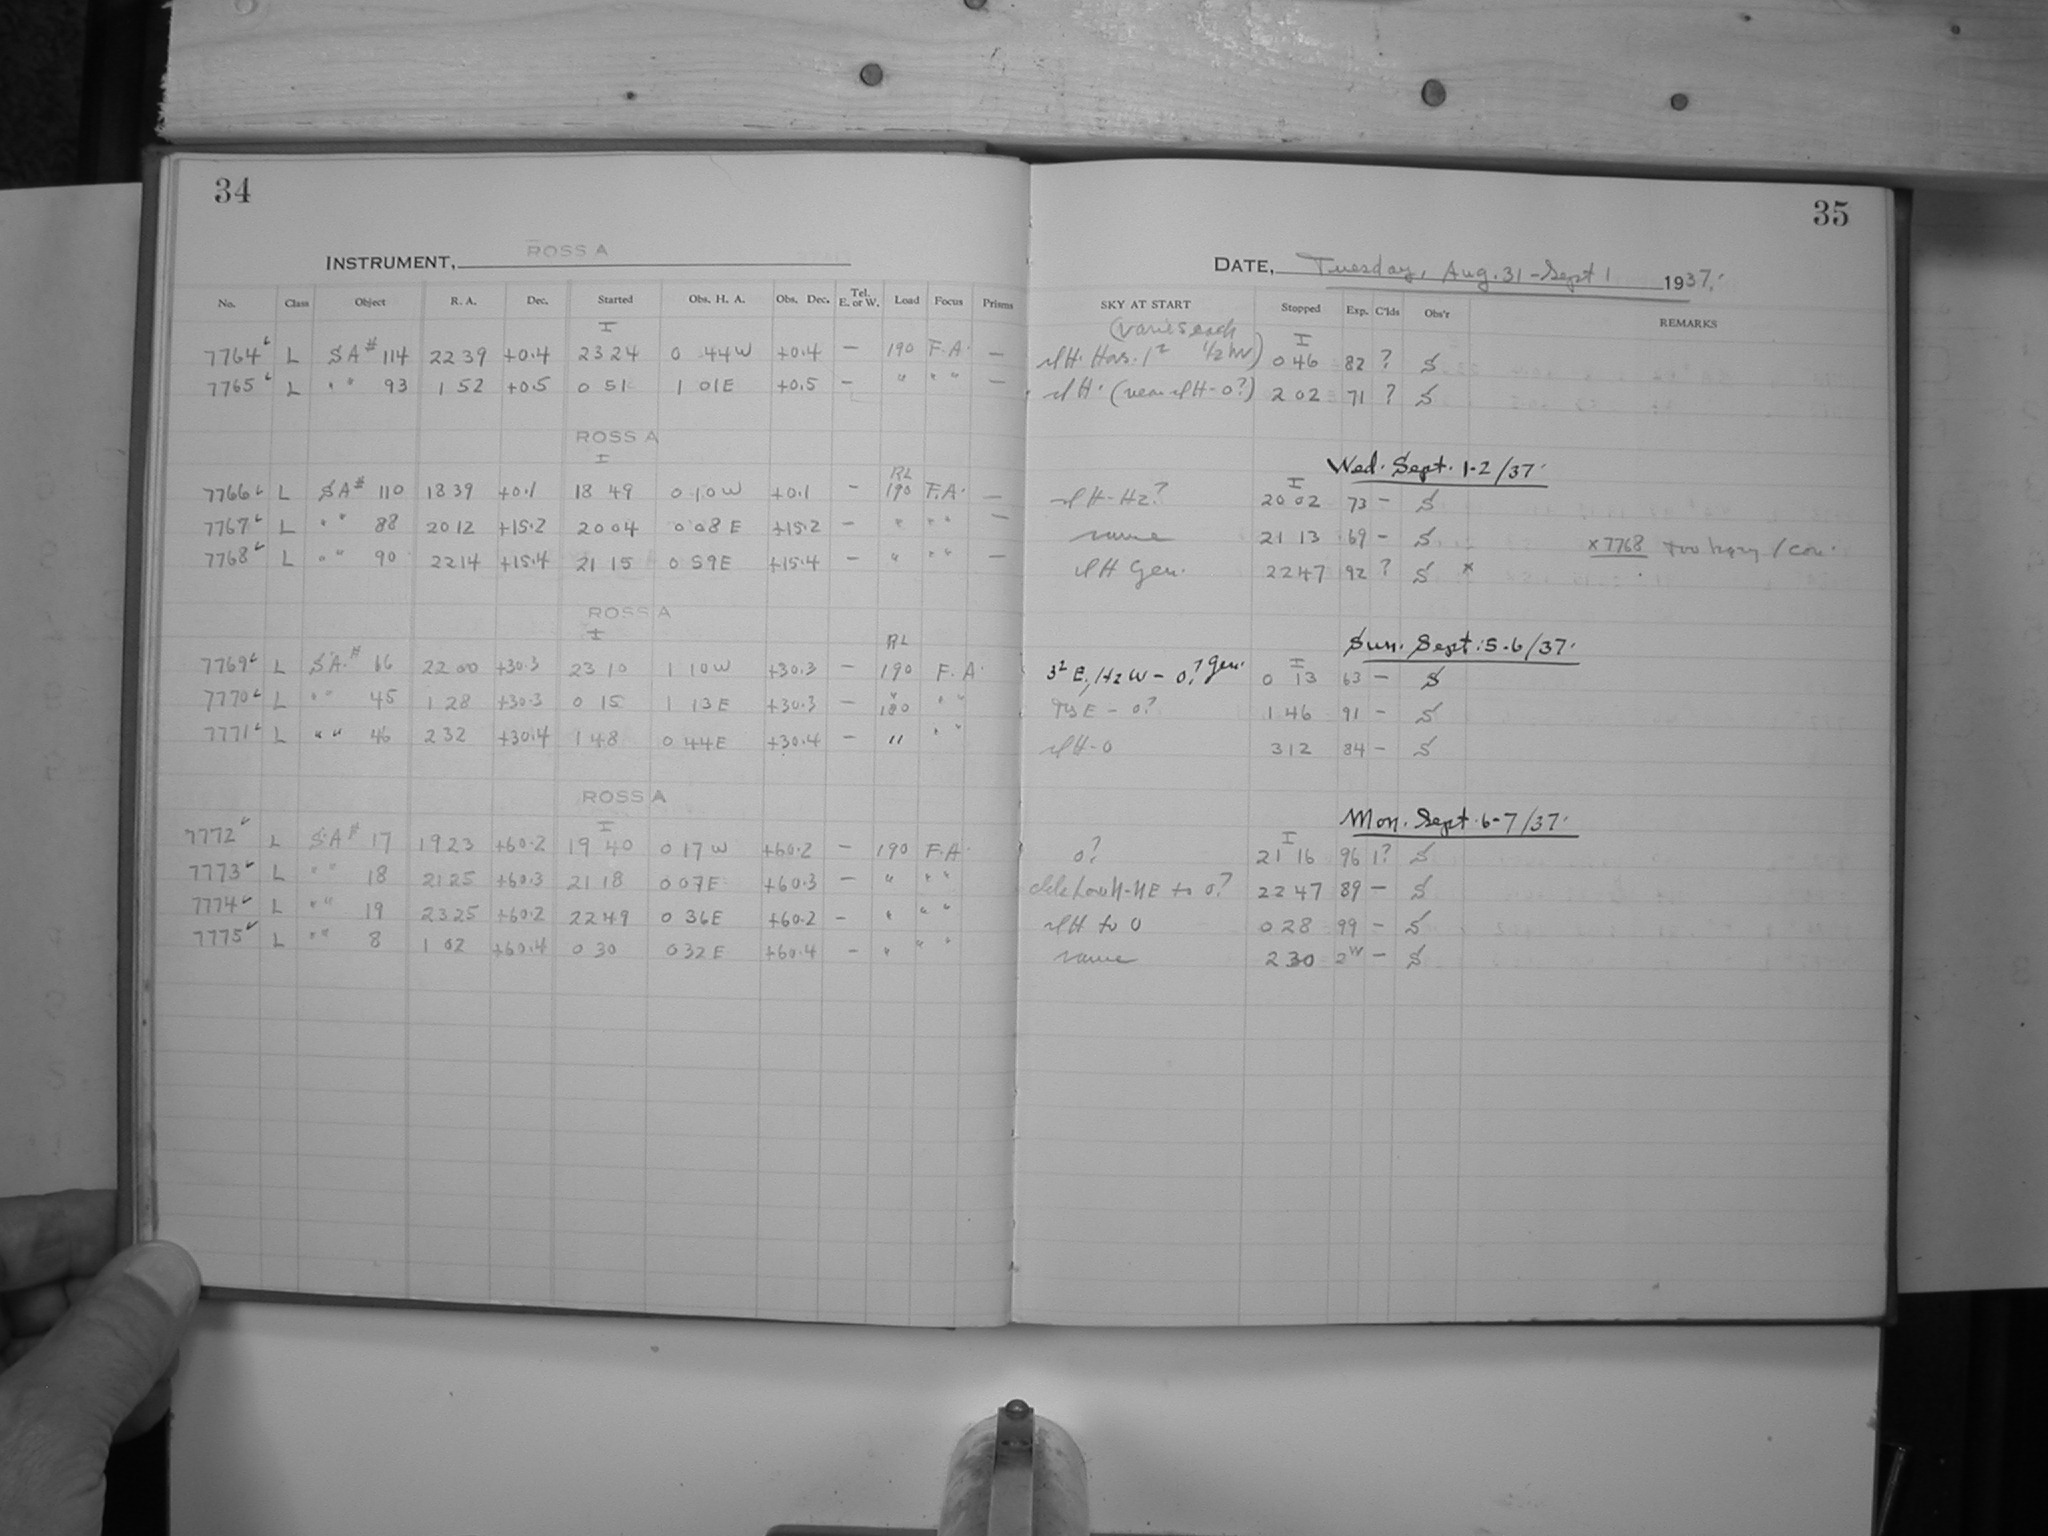 34
INSTRUMENT, ROSS A
No. Class Object R. A. Dec. Started Obs. H. A. Obs. Dec. Tel. E. or W. Load Focus Prisms
I
7764 L SA# 114 22 39 +0.4 23 24 0 44W +0.4 — 190 F.A. —
7765 L " " 93 1 52 +0.5 0 51 1 01E +0.5 — " " " —
ROSS A
I
RL
7766 L SA# 110 18 39 +0.1 18 49 0 10W +0.1 — 190 F.A. —
7767 L " " 88 20 12 +15.2 20 04 0 08 E +15.2 — " " " —
7768 L " " 90 22 14 +15.4 21 15 0 59E +15.4 — " " " —
ROSS A
I
RL
7769 L SA.# 66 22 00 +30.3 23 10 1 10W +30.3 — 190 F. A.
7770 L " " 45 1 28 +30.3 0 15 1 13E +30.3 — 180 " "
7771 L " " 46 2 32 +30.4 1 48 0 44E +30.4 — " " "
ROSS A
I
7772 L SA# 17 19 23 +60.2 19 40 0 17W +60.2 — 190 F.A.
7773 L " " 18 21 25 +60.3 21 18 0 07E +60.3 — " " "
7774 L " " 19 23 25 +60.2 22 49 0 36E +60.2 — " " "
7775 L " " 8 1 02 +60.4 0 30 0 32E +60.4 — " " "
35
DATE, Tuesday, Aug. 31 - Sept 1 1937.
SKY AT START Stopped Exp. C'lds Obs'r REMARKS
(varies each
I
1/2 hr) 0 46 82 ? S
0?) 2 02 71 ? S
Wed. Sept. 1-2/37.
I
H-Hz? 20 02 73 — S
same 21 13 69 — S x 7768 too
H Gen. 22 47 92 ? S x
Sun. Sept. 5-6/37.
I
E, Hz W - 0? Gen. 0 13 63 — S
E - 0? 1 46 91 — S
H-0 3 12 84 — S
Mon. Sept. 6-7/37.
I
0? 21 16 96 1? S
to 0? 22 47 89 — S
H to 0 0 28 99 — S
same 2 30 — S